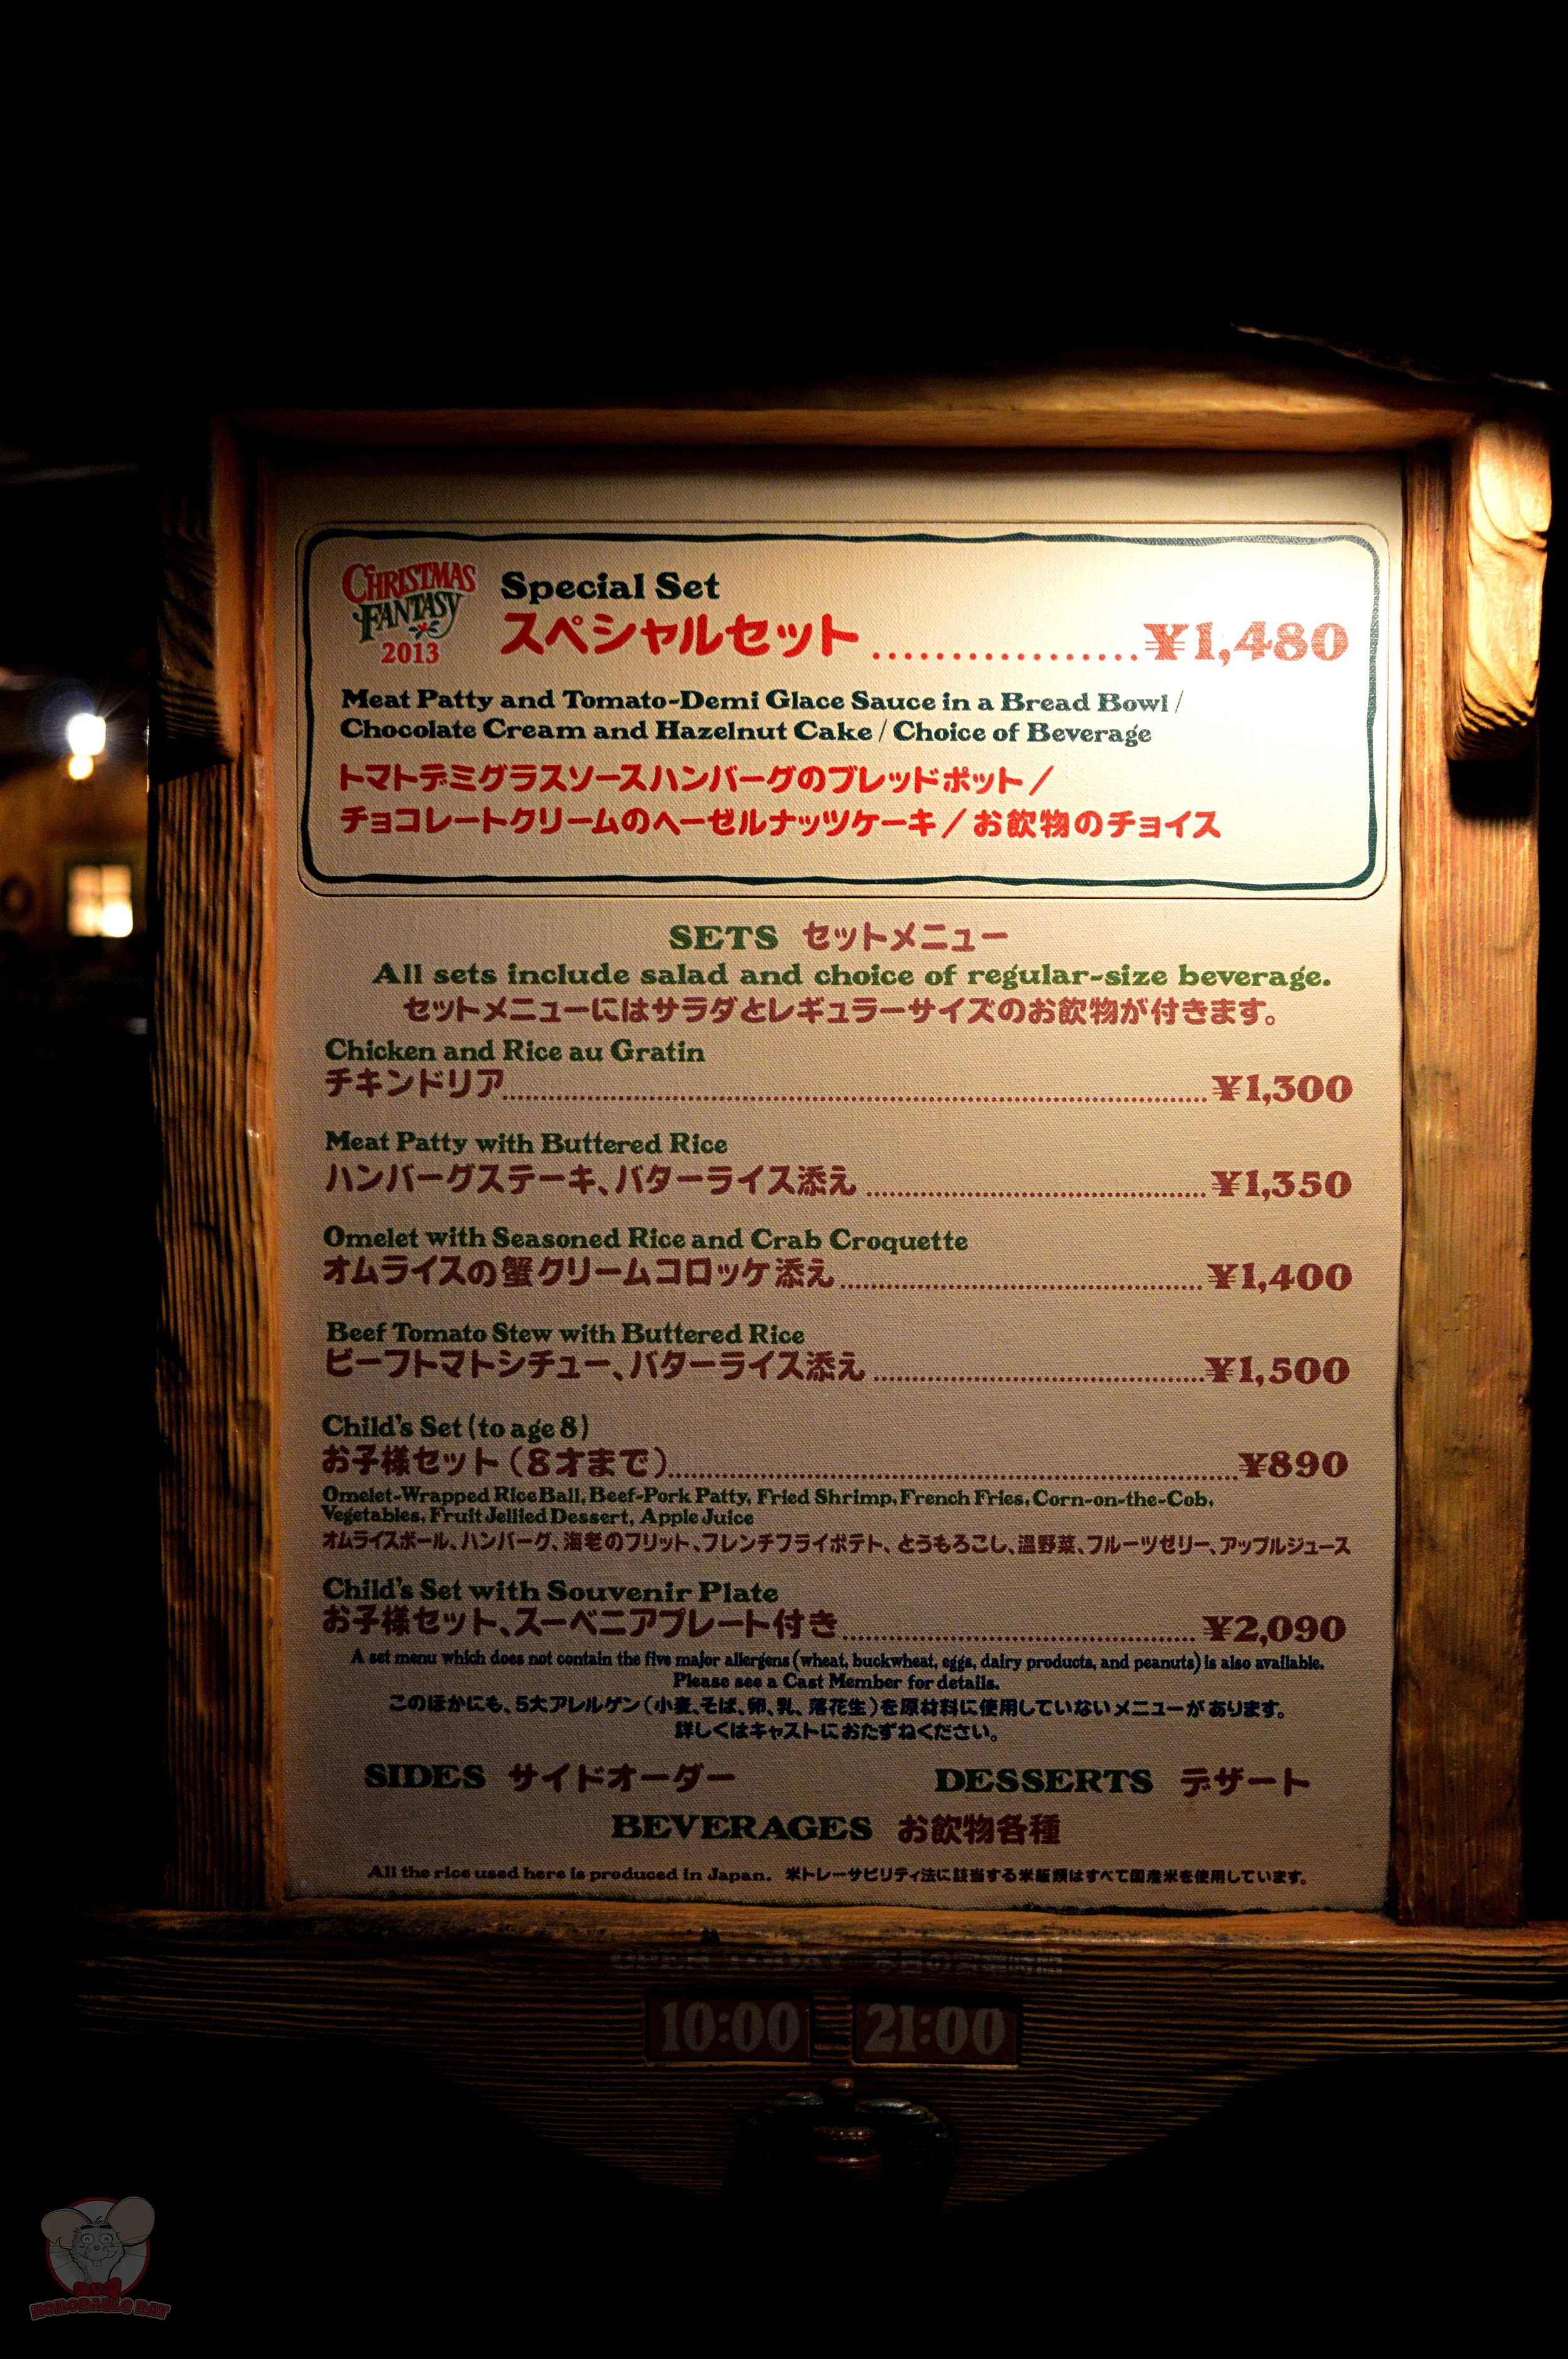 CHRISTMAS
FANTASY
2013
Special Set
スペシャルセット.................¥1,480
Meat Patty and Tomato-Demi Glace Sauce in a Bread Bowl /
Chocolate Cream and Hazelnut Cake / Choice of Beverage
トマトデミグラスソースハンバーグのブレッドポット／
チョコレートクリームのヘーゼルナッツケーキ／お飲物のチョイス
SETS セットメニュー
All sets include salad and choice of regular-size beverage.
セットメニューにはサラダとレギュラーサイズのお飲物が付きます。
Chicken and Rice au Gratin
チキンドリア..........¥1,300
Meat Patty with Buttered Rice
ハンバーグステーキ、バターライス添え..........¥1,350
Omelet with Seasoned Rice and Crab Croquette
オムライスの蟹クリームコロッケ添え..........¥1,400
Beef Tomato Stew with Buttered Rice
ビーフトマトシチュー、バターライス添え..........¥1,500
Child's Set (to age 8)
お子様セット（8才まで）..........¥890
Omelet-Wrapped Rice Ball, Beef-Pork Patty, Fried Shrimp, French Fries, Corn-on-the-Cob,
Vegetables, Fruit Jellied Dessert, Apple Juice
オムライスボール、ハンバーグ、海老のフリット、フレンチフライポテト、とうもろこし、温野菜、フルーツゼリー、アップルジュース
Child's Set with Souvenir Plate
お子様セット、スーベニアプレート付き..........¥2,090
A set menu which does not contain the five major allergens (wheat, buckwheat, eggs, dairy products, and peanuts) is also available.
Please see a Cast Member for details.
このほかにも、5大アレルゲン（小麦、そば、卵、乳、落花生）を原材料に使用していないメニューがあります。
詳しくはキャストにおたずねください。
SIDES サイドオーダー DESSERTS デザート
BEVERAGES お飲物各種
All the rice used here is produced in Japan. 米トレーサビリティ法に該当する米飯類はすべて国産米を使用しています。
OPEN TODAY 本日の営業時間
10:00 21:00
HONORABLE RAT